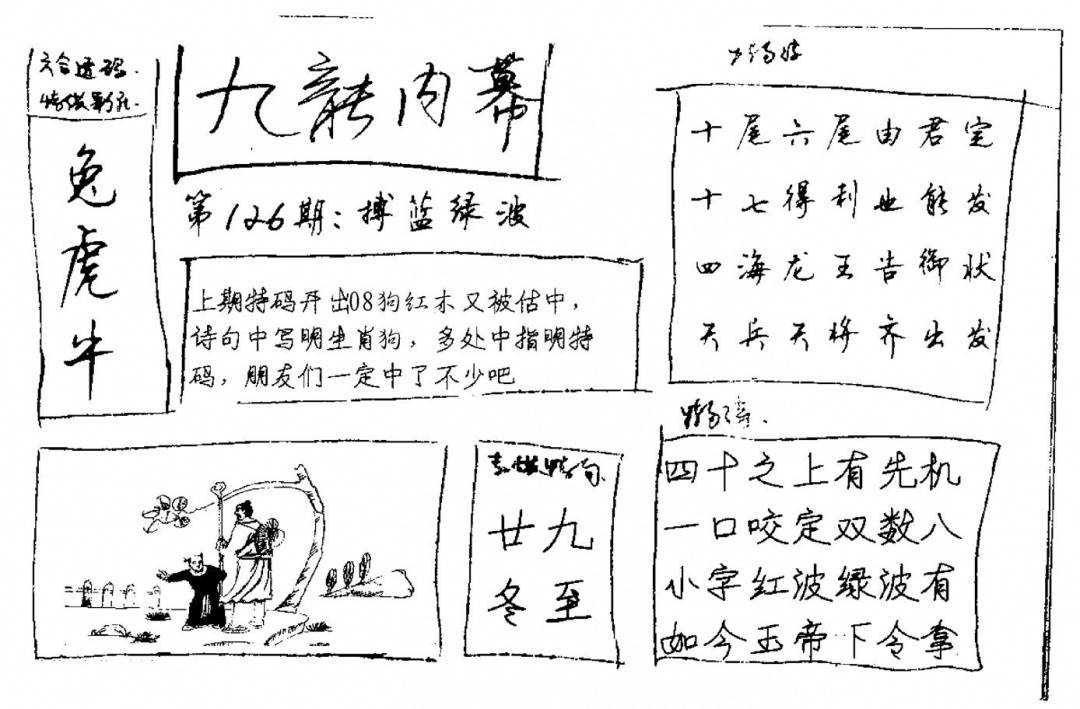 六合透码
兔
虎
牛
九龍内幕
第126期：搏蓝绿波
上期特码开出08狗红木又被估中，
待句中写明生肖狗，多处中指明特
码，朋友们一定中了不少吧
十尾六尾由君定
十七得利也能发
四海龙王告御状
天兵天将齐出发
廿九
冬至
四十之上有先机
一口咬定双数八
小字红波绿波有
如今玉帝下令拿